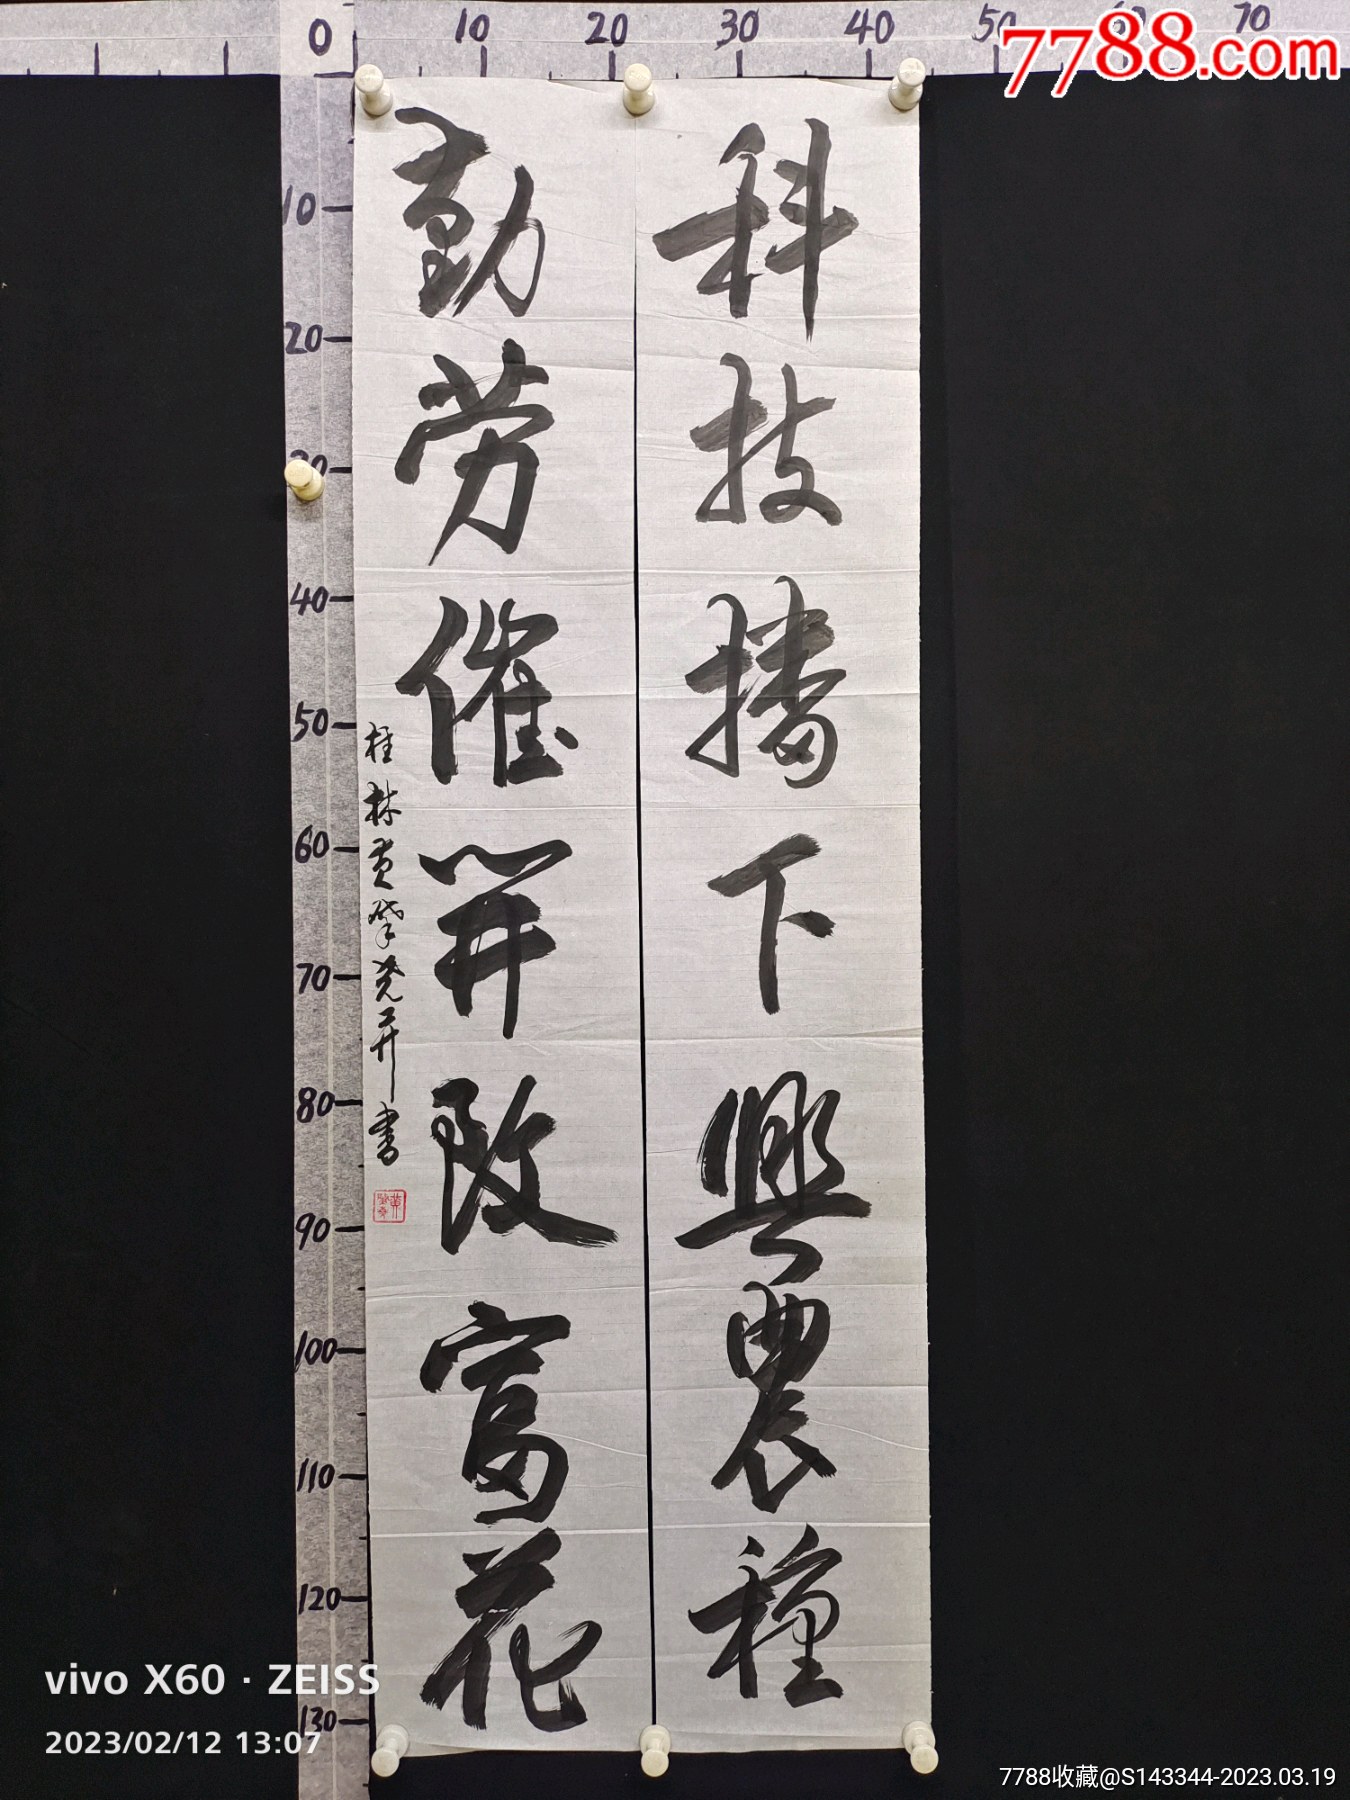 0 10 20 30 40 50 60 70
7788.com
10
20
30
40
50
60
70
80
90
100
110
120
130
科技播下興農種
勤劳催開致富花
桂林黄肇尧并書
vivo X60 · ZEISS
2023/02/12 13:07
7788收藏@S143344-2023.03.19